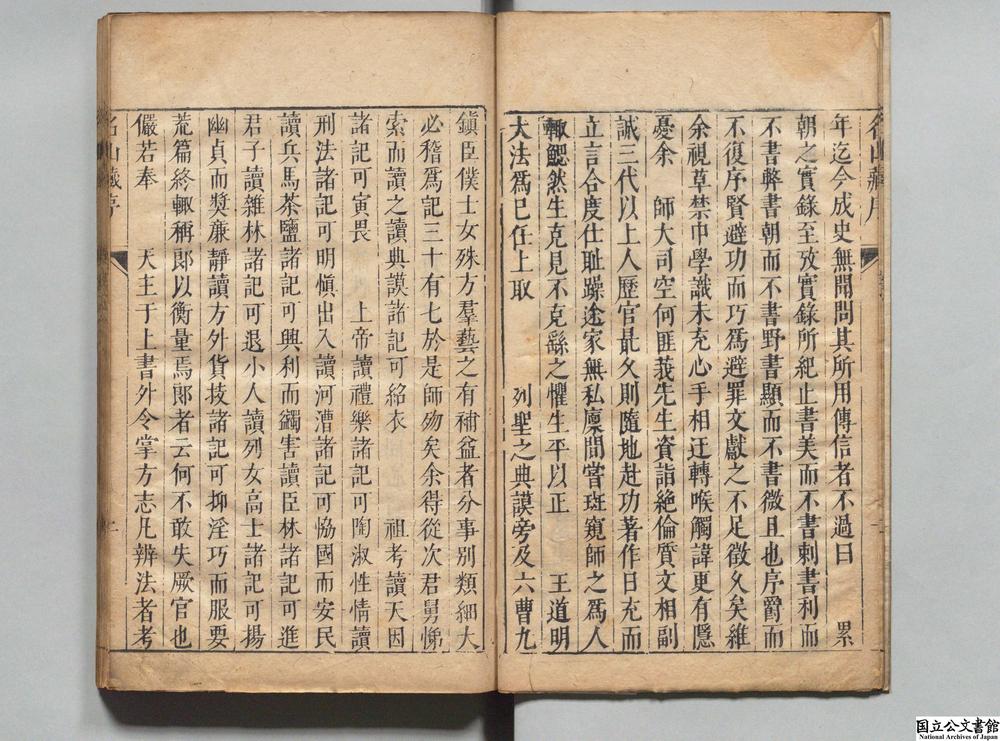 名山藏序
年迄今成史無聞問其所用傳信者不過曰　累
朝之實錄至攷實錄所紀止書美而不書刺書利而
不書弊書朝而不書野書顯而不書微且也序爵而
不復序賢避功而巧爲避罪文獻之不足徵久矣維
余視草禁中學識未充心手相迂轉喉觸諱更有隱
憂余　師大司空何匪莪先生資詣絶倫質文相副
誠三代以上人歷官㝡久則隨地赴功著作日充而
立言合度仕耻躁途家無私廩間嘗斑窺師之爲人
輙鰓然生克見不克繇之懼生平以正　王道明
大法爲已任上取　列聖之典謨旁及六曹九
鎮臣僕士女殊方羣藝之有補益者分事别類細大
必稽爲記三十有七於是師歾矣余得從次君舅悌
索而讀之讀典謨諸記可紹衣　祖考讀天因
諸記可寅畏　上帝讀禮樂諸記可陶淑性情讀
刑法諸記可明愼出入讀河漕諸記可恊國而安民
讀兵馬茶鹽諸記可興利而蠲害讀臣林諸記可進
君子讀雜林諸記可退小人讀列女高士諸記可揚
幽貞而奬亷靜讀方外貨技諸記可抑淫巧而服要
荒篇終輙稱郎以衡量焉郎者云何不敢失厥官也
儼若奉　天主于上書外令掌方志凡辨法者考
名山藏序
二
国立公文書館
National Archives of Japan